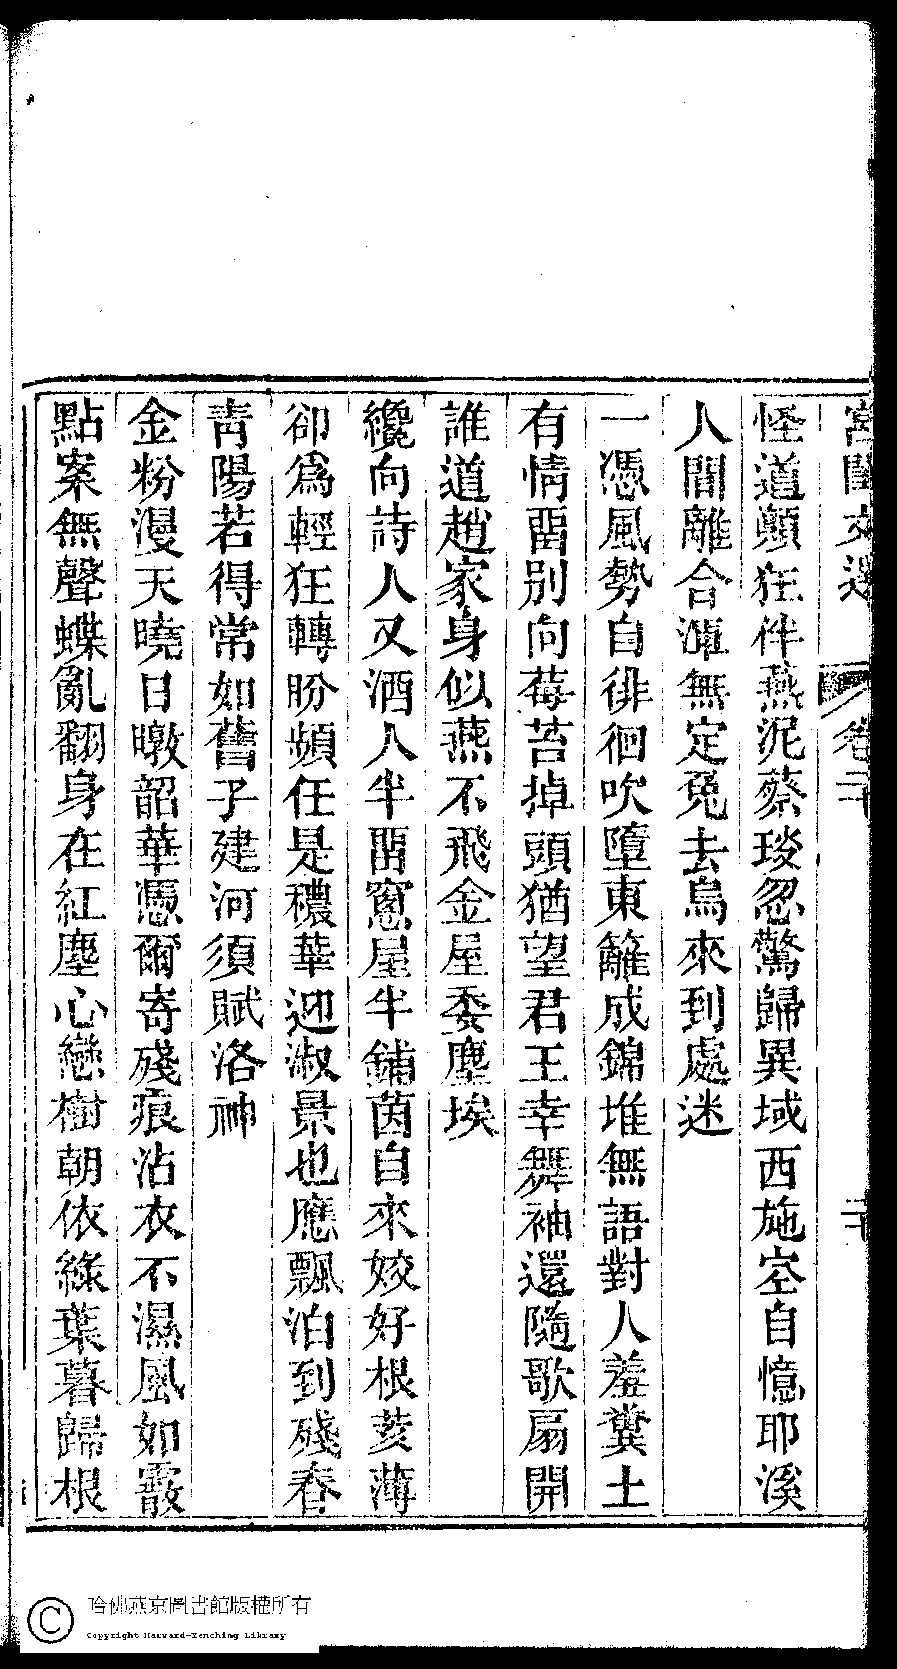 宮閨文選 卷二十 二十
怪道顛狂伴燕泥蔡琰忽驚歸異域西施空自憶耶溪
人間離合渾無定兔去烏來到處迷
一憑風勢自徘徊吹墮東籬成錦堆無語對人羞糞土
有情畱別向莓苔掉頭猶望君王幸舞袖還隨歌扇開
誰道趙家身似燕不飛金屋委塵埃
纔向詩人又酒人半畱窻屋半鋪茵自來姣好根荄薄
卻爲輕狂轉盼頻任是穠華迎淑景也應飄泊到殘春
靑陽若得常如舊子建河須賦洛神
金粉漫天曉日暾韶華憑爾寄殘痕沾衣不濕風如霰
點案無聲蝶亂翻身在紅塵心戀樹朝依綠葉暮歸根
哈佛燕京圖書館版權所有
Copyright Harvard-Yenching Library